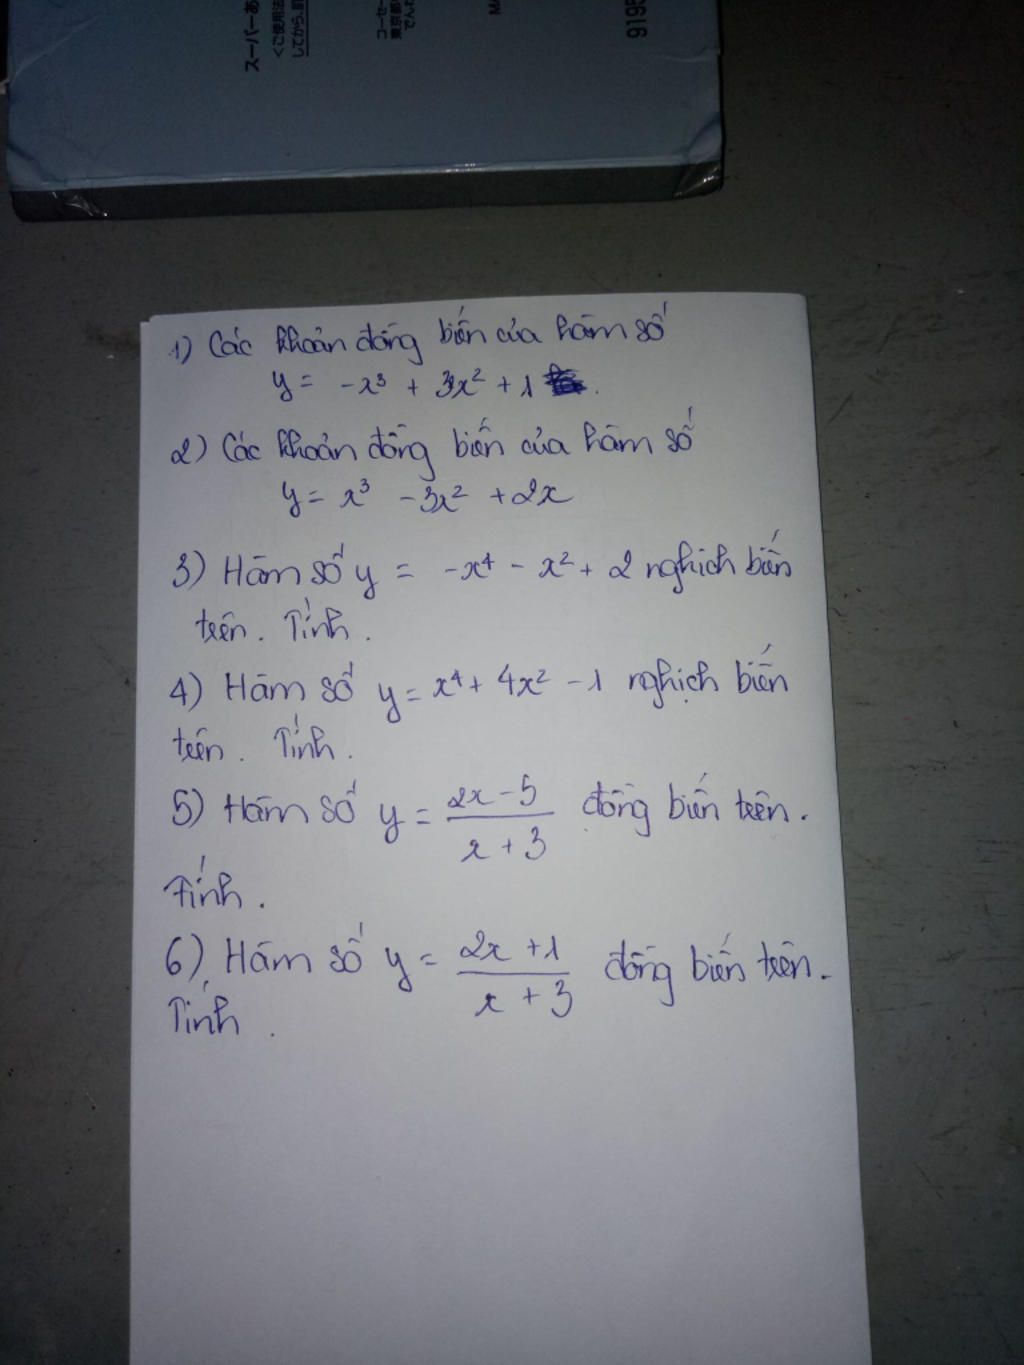 スーパーあ
くご使用法
してから、
コーセー
東京都
でんよ
MA
9195
1) Các khoản đồng biến của hàm số
y = -x³ + 3x² + 1
2) Các khoản đồng biến của hàm số
y = x³ - 3x² + 2x
3) Hàm số y = -x⁴ - x² + 2 nghịch biến
trên. Tính.
4) Hàm số y = x⁴ + 4x² - 1 nghịch biến
trên. Tính.
5) Hàm số y = (2x - 5)/(x + 3) đồng biến trên.
Tính.
6) Hàm số y = (2x + 1)/(x + 3) đồng biến trên.
Tính.